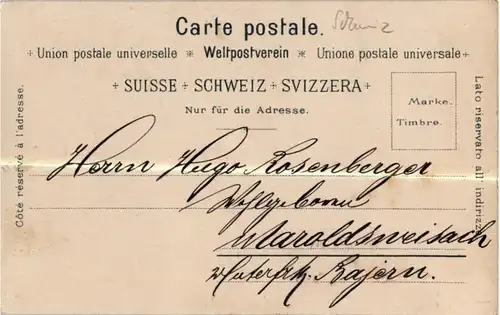 Carte postale.
Schweiz
+ Union postale universelle * Weltpostverein * Unione postale universale +
+ SUISSE + SCHWEIZ + SVIZZERA +
Nur für die Adresse.
Marke.
Timbre.
Côté réservé à l'adresse.
Lato riservato all' indirizzo
Herrn Hugo Rosenberger
Wohlgeboren
Maroldsweisach
Unterfrk. Bayern.